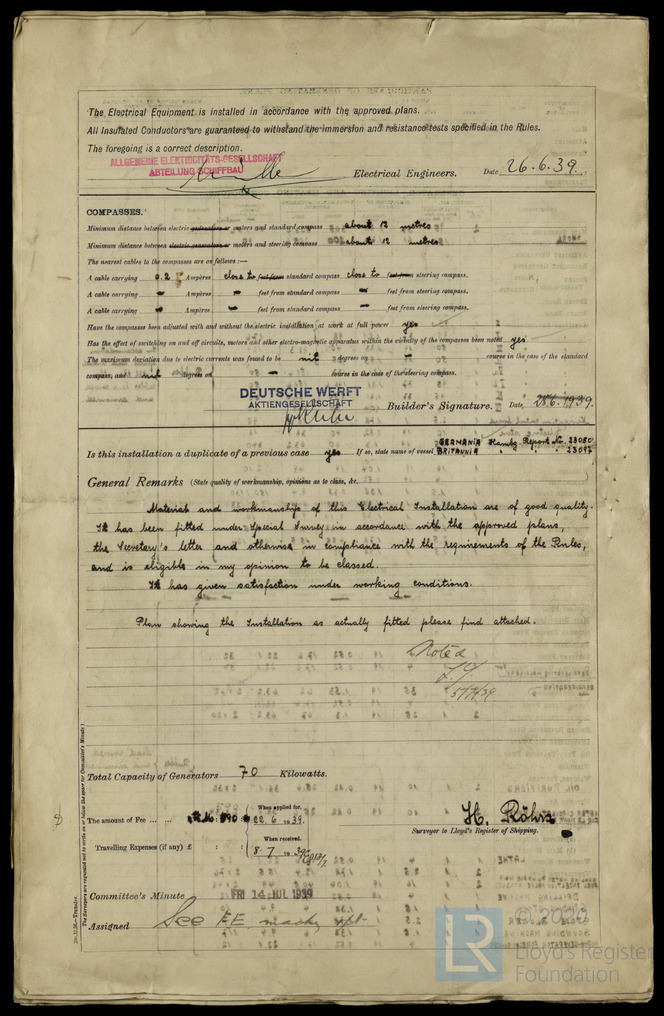 The Electrical Equipment is installed in accordance with the approved plans.
All Insulated Conductors are guaranteed to withstand the immersion and resistance tests specified in the Rules.
The foregoing is a correct description.
ALLGEMEINE ELEKTRICITÄTS-GESELLSCHAFT
ABTEILUNG SCHIFFBAU
Electrical Engineers. Date 26.6.39.
COMPASSES.
Minimum distance between electric generators or motors and standard compass about 12 metres
Minimum distance between electric generators or motors and steering compass about 12 metres
The nearest cables to the compasses are as follows:—
A cable carrying 0.2 Ampères close to feet from standard compass close to feet from steering compass.
A cable carrying - Ampères - feet from standard compass - feet from steering compass.
A cable carrying - Ampères - feet from standard compass - feet from steering compass.
Have the compasses been adjusted with and without the electric installation at work at full power yes
Has the effect of switching on and off circuits, motors and other electro-magnetic apparatus within the vicinity of the compasses been noted yes
The maximum deviation due to electric currents was found to be nil degrees on - course in the case of the standard
compass, and nil degrees on - course in the case of the steering compass.
DEUTSCHE WERFT
AKTIENGESELLSCHAFT
Builder's Signature. Date, 28.6.1939.
Is this installation a duplicate of a previous case yes If so, state name of vessel GERMANIA Hambg Report No. 23080
BRITANNIA " " " 23097
General Remarks (State quality of workmanship, opinions as to class, &c.
Material and workmanship of this Electrical Installation are of good quality.
It has been fitted under Special Survey in accordance with the approved plans,
the Secretary's letter and otherwise in compliance with the requirements of the Rules,
and is eligible in my opinion to be classed.
It has given satisfaction under working conditions.
Plan showing the Installation as actually fitted please find attached.
Noted
5/7/39
Total Capacity of Generators 70 Kilowatts.
The amount of Fee ... ... 890 When applied for, 22.6.1939.
H. Röhrs
Surveyor to Lloyd's Register of Shipping.
Travelling Expenses (if any) £ : : When received, 8.7.1939
Committee's Minute FRI 14 JUL 1939
Assigned See F.E. machy rpt.
2m.11.38.—Transfer
(The Surveyors are requested not to write on or below the space for Committee's Minute.)
8
LR
© 2020
Lloyd's Register
Foundation